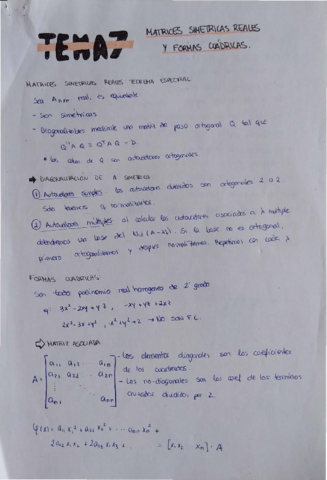 TEMA 7
MATRICES SIMETRICAS REALES
Y FORMAS CUÁDRICAS.
MATRICES SIMETRICAS REALES TEOREMA ESPECTRAL
Sea Anxn real, es equivalente
- Son simetricas
- Diagonalizables mediante una matriz de paso ortogonal Q tal que
Q⁻¹AQ = QᵗAQ = D.
• las colum. de Q son autovectores ortogonales
⇒ DIAGONALIZACIÓN DE A SIMETRICA
① Autovalores simples: los autovectores obtenidos son ortogonales 2 a 2
Solo tenemos q normalizarlos.
② Autovalores múltiples al calcular los autovectores asociados a λ multiple
obtendremos una base del (A - λI). Si la base no es ortogonal,
primero ortogonalizamos y despues normalizamos. Repetimos con cada λ
FORMAS CUADRICAS:
Son todo polinomio real homogeneo de 2º grado
3x² - 2xy + y², -xy + yz + 2xz
2x² - 3x + y², x² + y² + 2 → No son F.C.
⇒ MATRIZ ASOCIADA
A = [a11 a12 a1n
a21 a22 ... a2n
an1 ann]
- Los elementos diagonales son los coeficientes
de los cuadrados
- Los no-diagonales son los coef. de los terminos
cruzados divididos por 2.
φ(x) = a11 x1² + a22 x2² + ... ann xn² +
2a12 x1 x2 + 2a13 x1 x3 + = [x1 x2 ... xn] · A